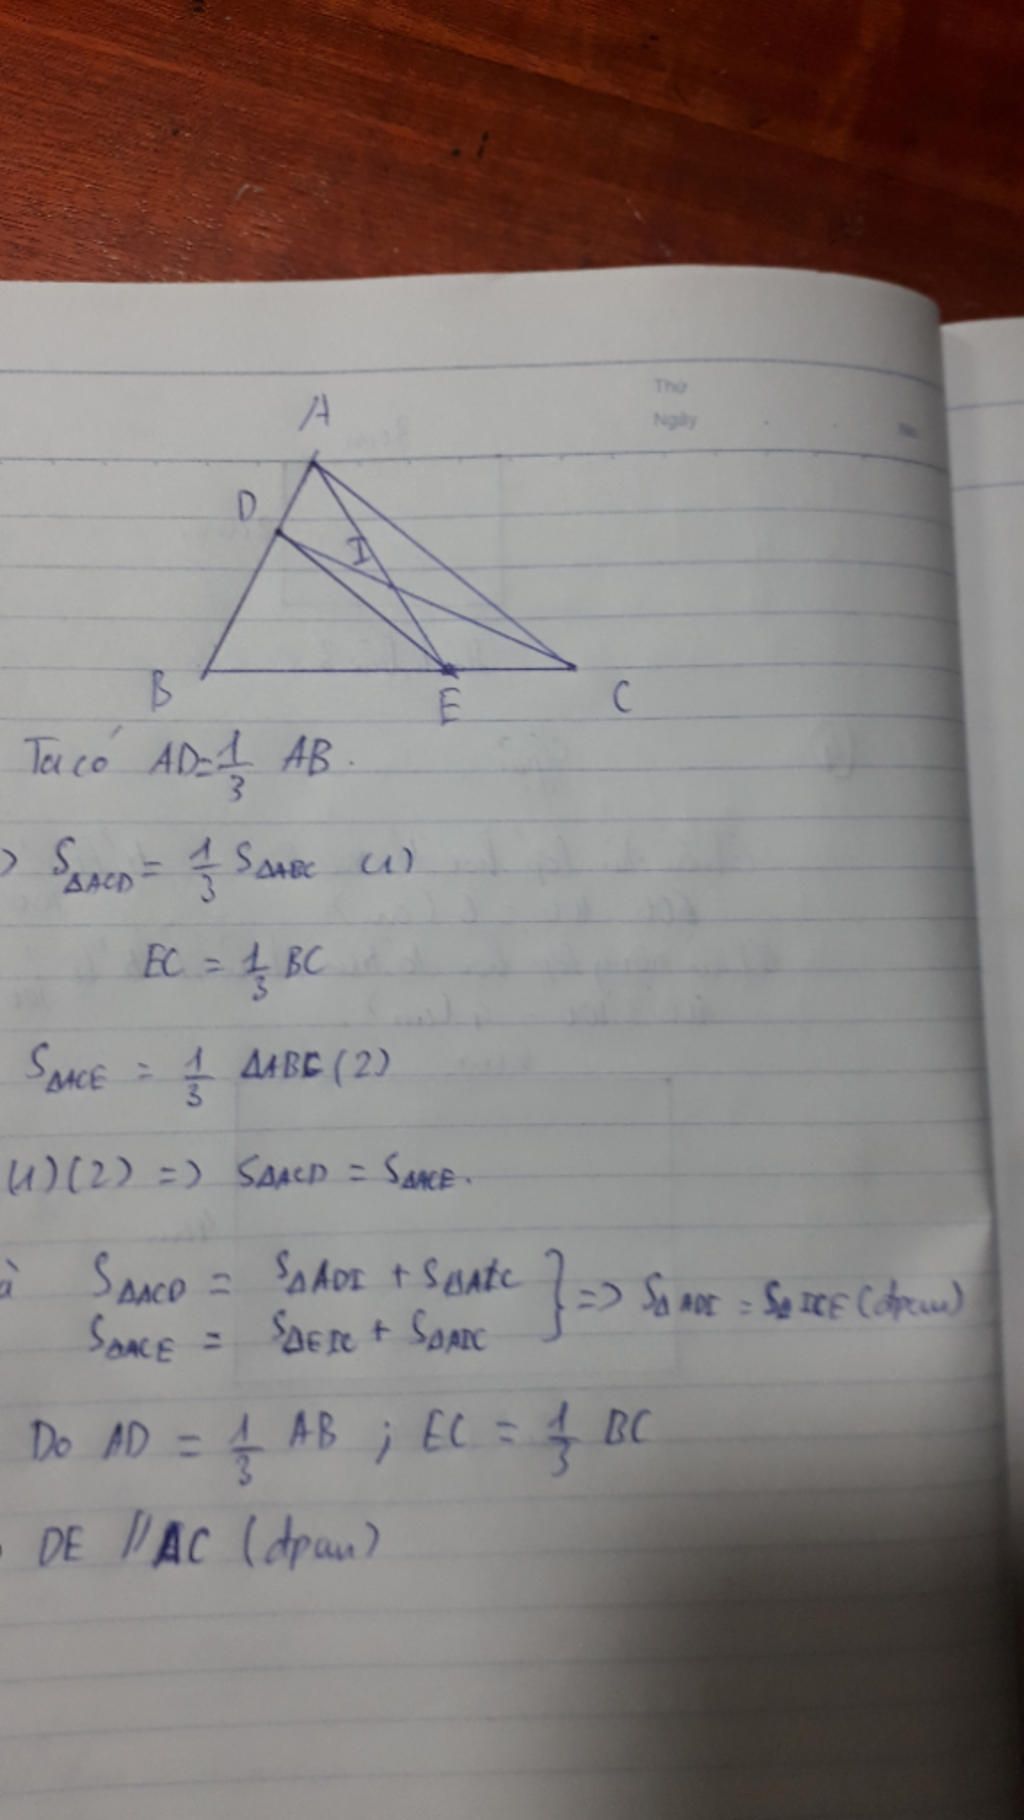 Thứ
Ngày
A
D
I
B
E
C
Ta có AD = 1/3 AB.
S∆ACD = 1/3 S∆ABC (1)
EC = 1/3 BC
S∆ACE = 1/3 ∆ABC (2)
(1)(2) => S∆ACD = S∆ACE.
S∆ACD = S∆ADI + S∆AIC
S∆ACE = S∆EIC + S∆AIC } => S∆ADI = S∆ICE (đpcm)
Do AD = 1/3 AB ; EC = 1/3 BC
DE // AC (đpcm)